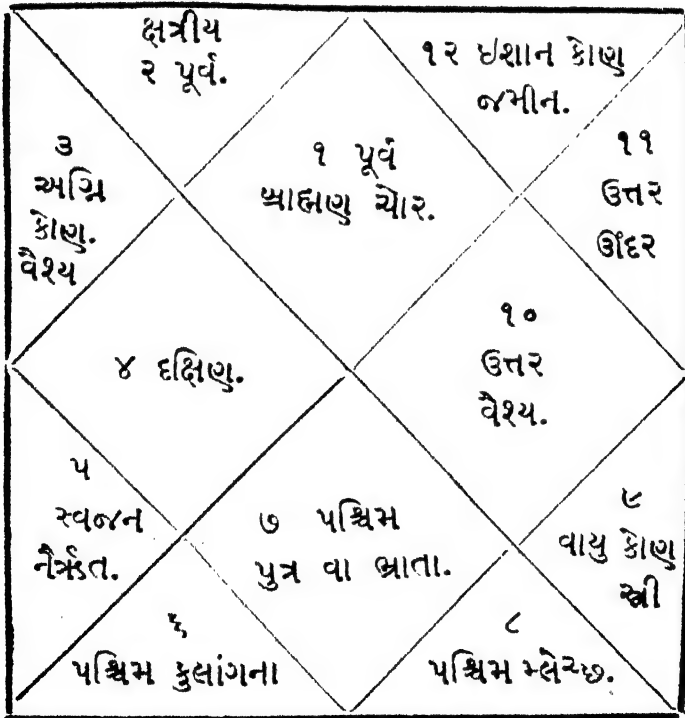 ક્ષત્રીય
૨ પૂર્વ.
૧૨ ઇશાન કોણ
જમીન.
૩
અગ્નિ
કોણ.
વૈશ્ય
૧ પૂર્વ
બ્રાહ્મણ ચોર.
૧૧
ઉત્તર
ઊંદર
૪ દક્ષિણ.
૧૦
ઉત્તર
વૈશ્ય.
૫
સ્વજન
નૈઋત.
૭ પશ્ચિમ
પુત્ર વા ભ્રાતા.
૯
વાયુ કોણ
સ્ત્રી
૬
પશ્ચિમ કુલાંગના
૮
પશ્ચિમ મ્લેચ્છ.